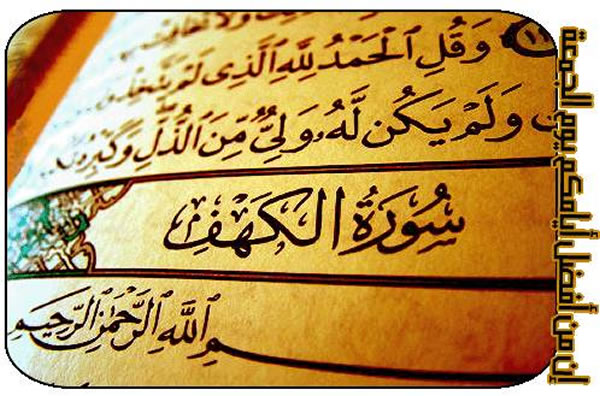 وَلَا تُخَافِتْ
وَقُلِ ٱلْحَمْدُ لِلَّهِ ٱلَّذِى لَمْ يَتَّخِذْ
وَلَمْ يَكُن لَّهُۥ وَلِىٌّ مِّنَ ٱلذُّلِّ وَكَبِّرْهُ
سُورَةُ الكَهْفِ
ـمِ ٱللَّهِ ٱلرَّحْمَٰنِ ٱلرَّحِيمِ
إن من أفضل أيامكم يوم الجمعة